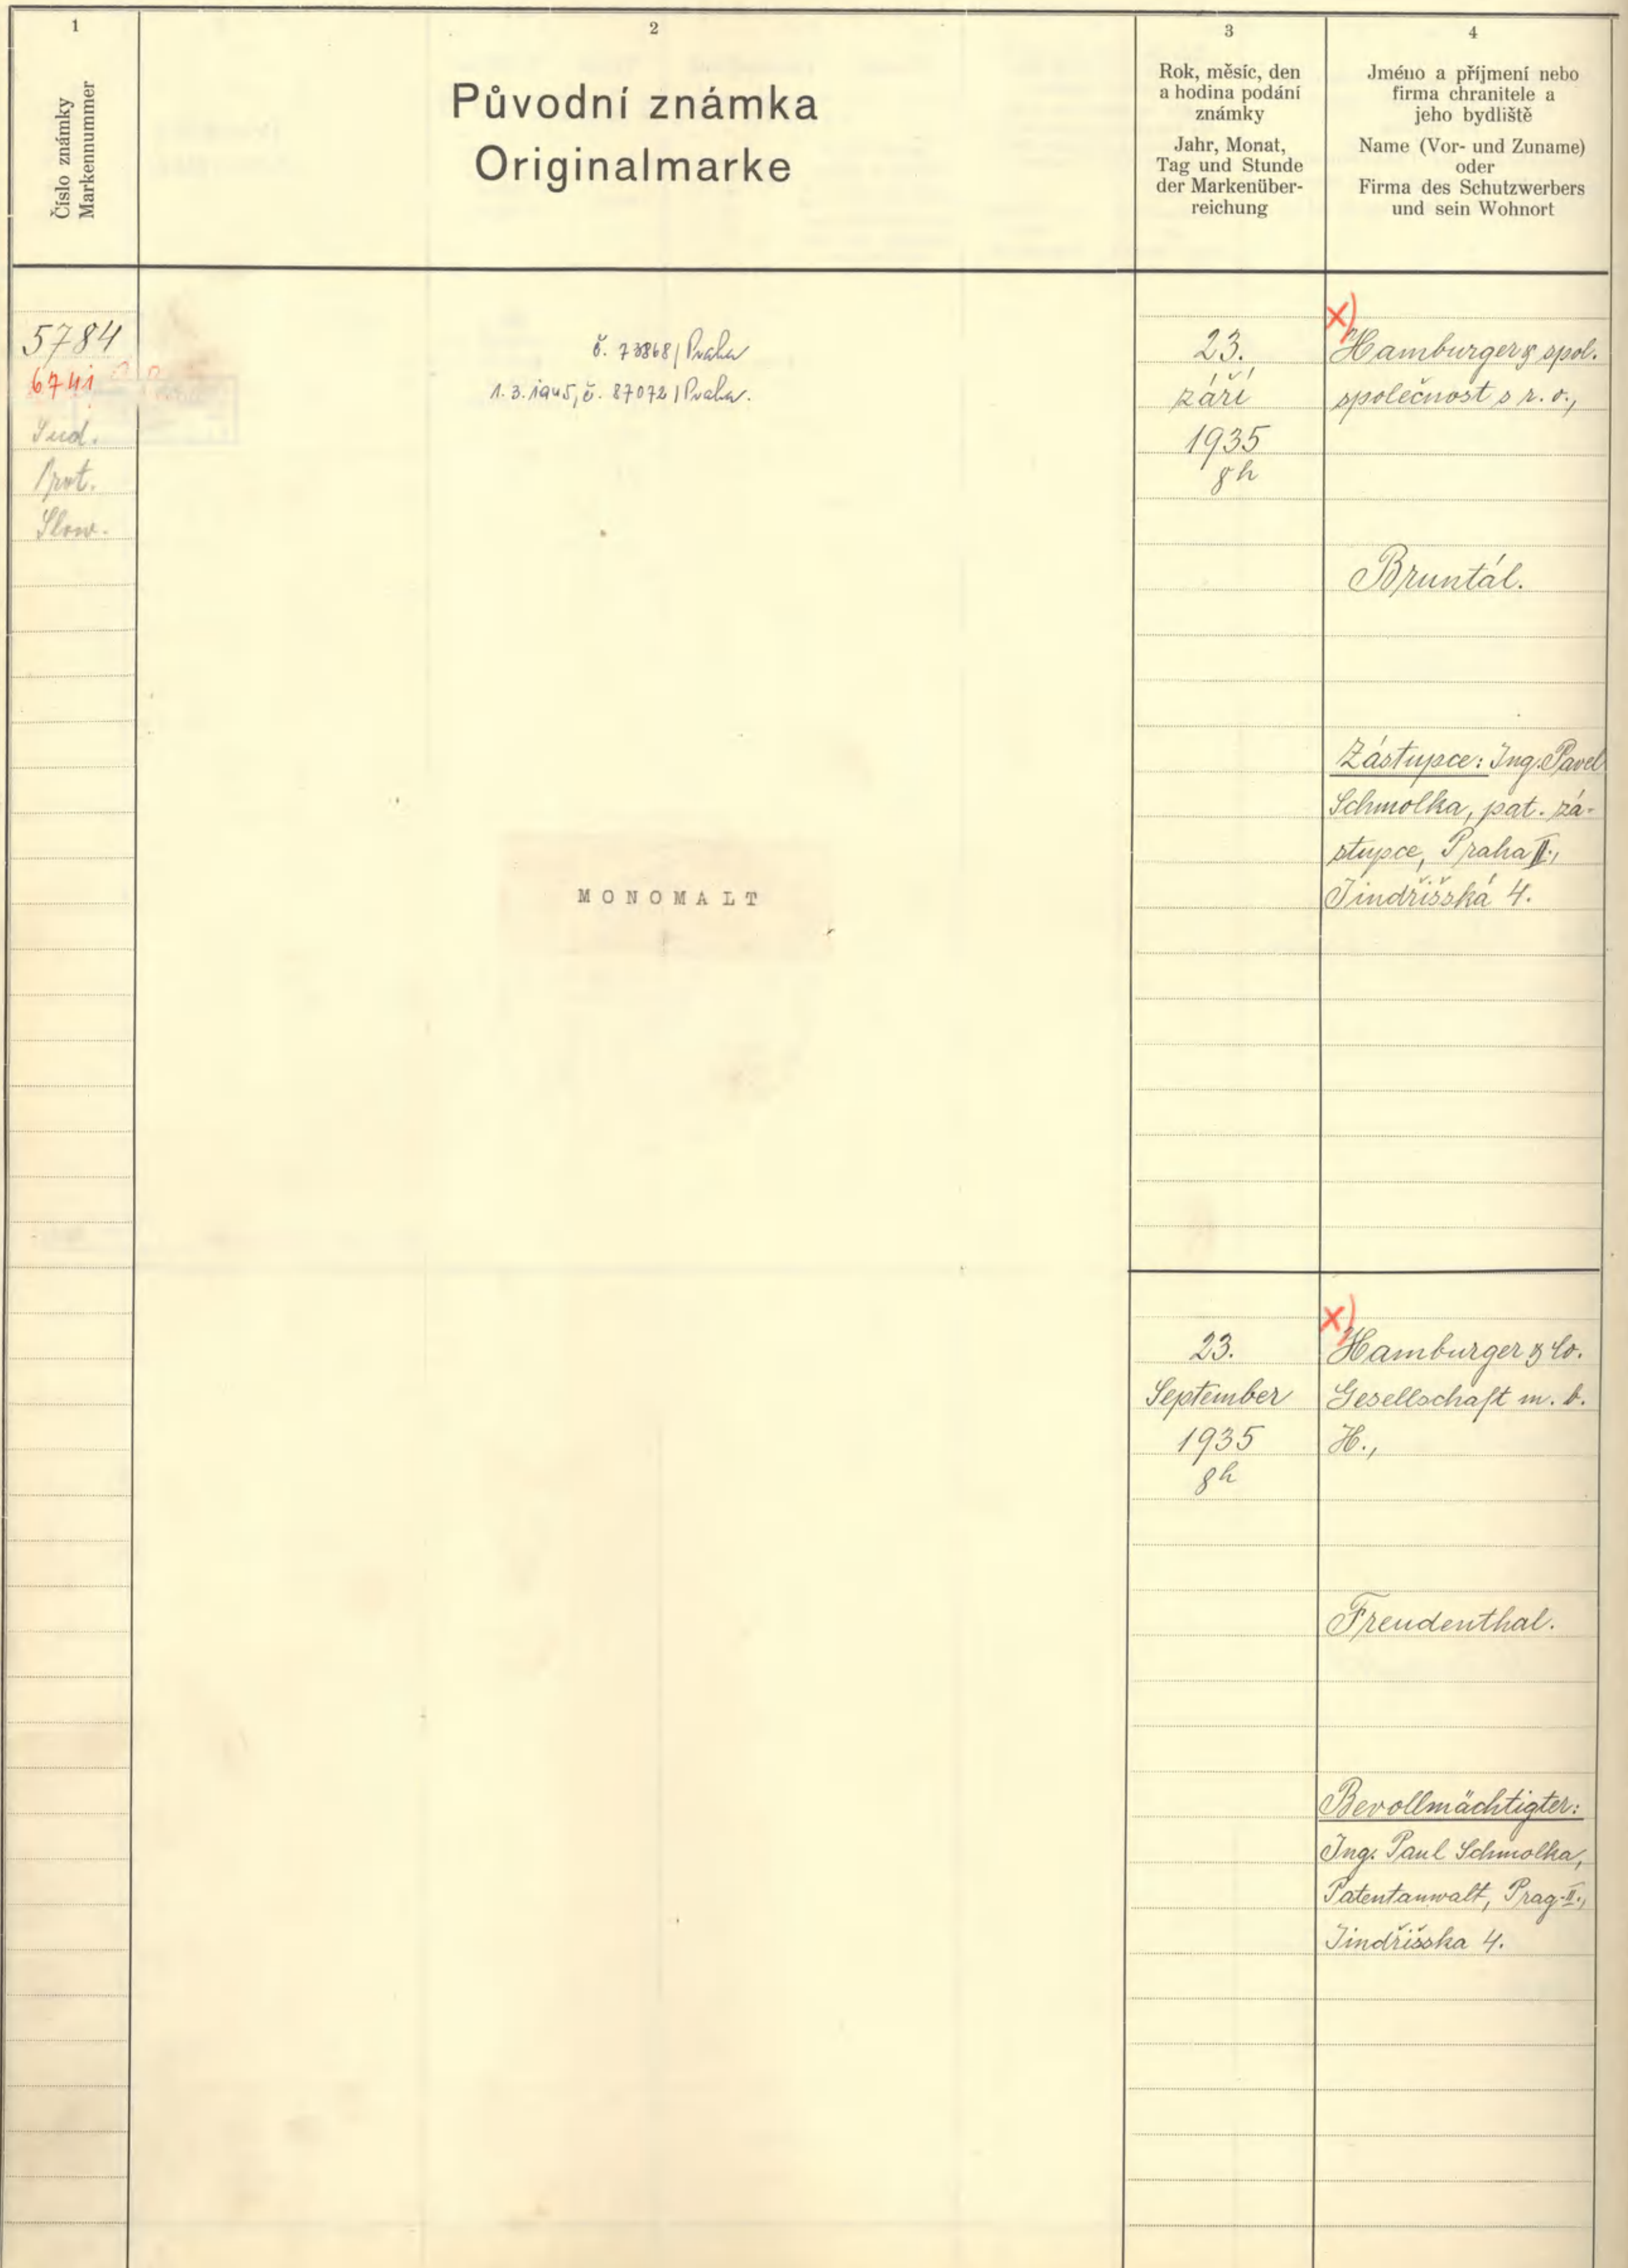 1
Číslo známky
Markennummer
2
Původní známka
Originalmarke
3
Rok, měsíc, den
a hodina podání
známky
Jahr, Monat,
Tag und Stunde
der Markenüber-
reichung
4
Jméno a příjmení nebo
firma chranitele a
jeho bydliště
Name (Vor- und Zuname)
oder
Firma des Schutzwerbers
und sein Wohnort
5784
6741
Sud.
Prot.
Slow.
č. 73868/Praha
1.3.1945, č. 87072/Praha.
MONOMALT
23.
září
1935
8h
x)
Hamburger & spol.
společnost s r. o.,
Bruntál.
Zástupce: Ing. Pavel
Schmolka, pat. zá-
stupce, Praha II.,
Jindřišská 4.
23.
September
1935
8h
x)
Hamburger & Co.
Gesellschaft m. b.
H.,
Freudenthal.
Bevollmächtigter:
Ing. Paul Schmolka,
Patentanwalt, Prag-II.,
Jindřišska 4.